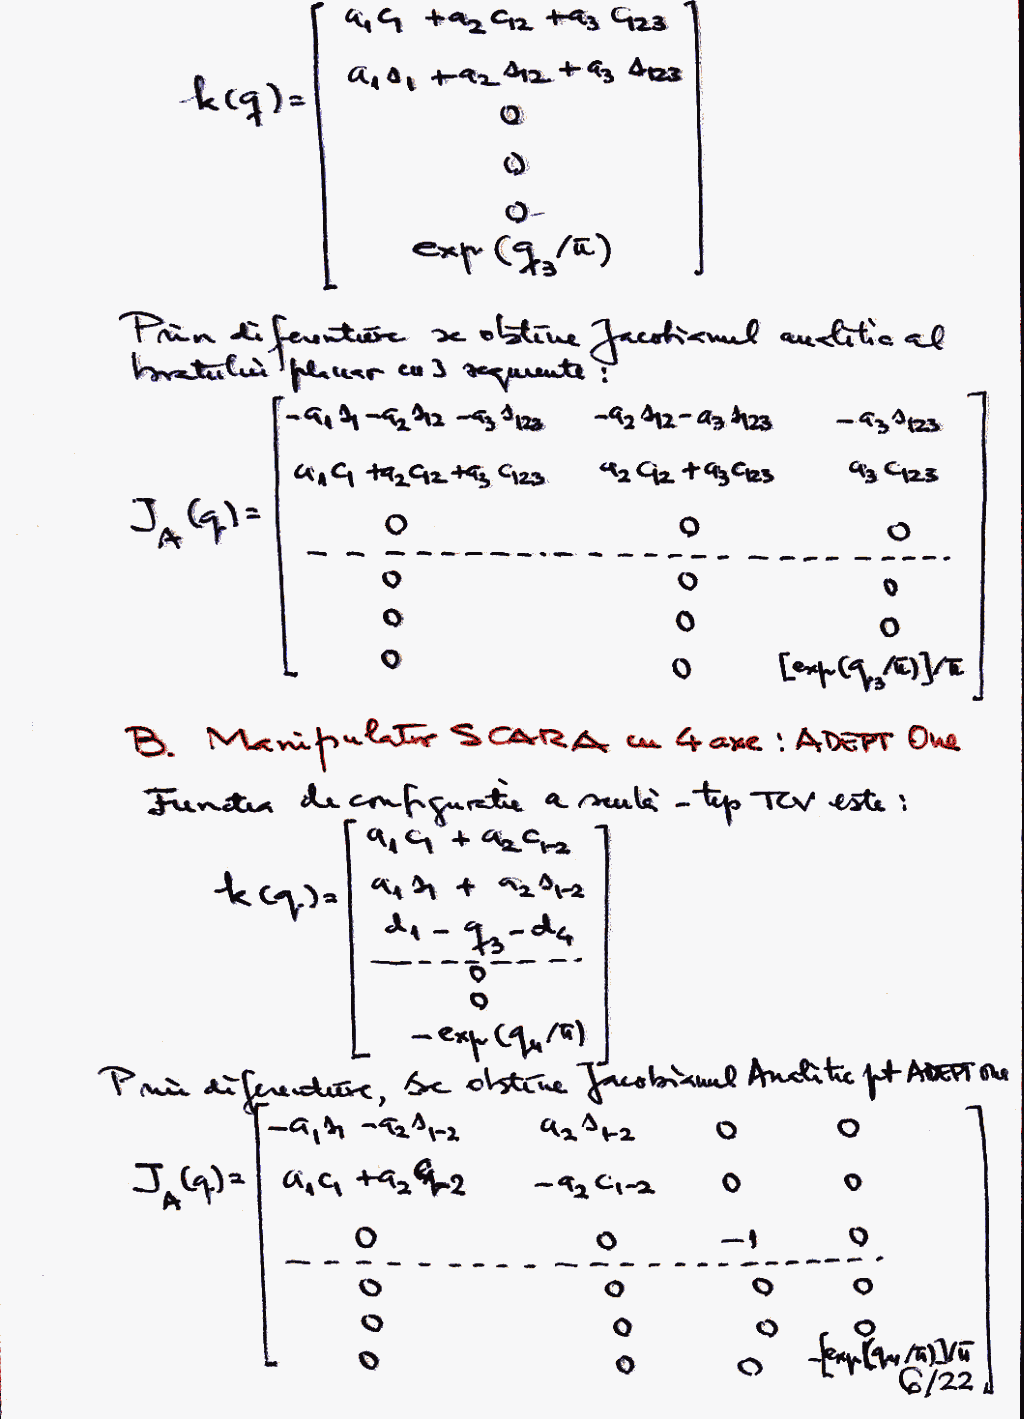 k(q)= [ a₁c₁ + a₂c₁₂ + a₃c₁₂₃
a₁s₁ + a₂s₁₂ + a₃s₁₂₃
0
0
0
exp(q₃/π) ]
Prin diferentiere se obtine Jacobianul analitic al
bratului planar cu 3 segmente :
J_A(q)= [ -a₁s₁-a₂s₁₂-a₃s₁₂₃ -a₂s₁₂-a₃s₁₂₃ -a₃s₁₂₃
a₁c₁+a₂c₁₂+a₃c₁₂₃ a₂c₁₂+a₃c₁₂₃ a₃c₁₂₃
0 0 0
0 0 0
0 0 0
0 0 [exp(q₃/π)]/π ]
B. Manipulator SCARA cu 4 axe : ADEPT One
Functia de configuratie a sculă-tip TCV este :
k(q)= [ a₁c₁ + a₂c₁₋₂
a₁s₁ + a₂s₁₋₂
d₁ - q₃ - d₄
0
0
-exp(q₄/π) ]
Prin diferentiere, se obtine Jacobianul Analitic pt ADEPT One
J_A(q)= [ -a₁s₁-a₂s₁₋₂ a₂s₁₋₂ 0 0
a₁c₁+a₂c₁₋₂ -a₂c₁₋₂ 0 0
0 0 -1 0
0 0 0 0
0 0 0 0
0 0 0 -[exp(q₄/π)]/π ]
6/22